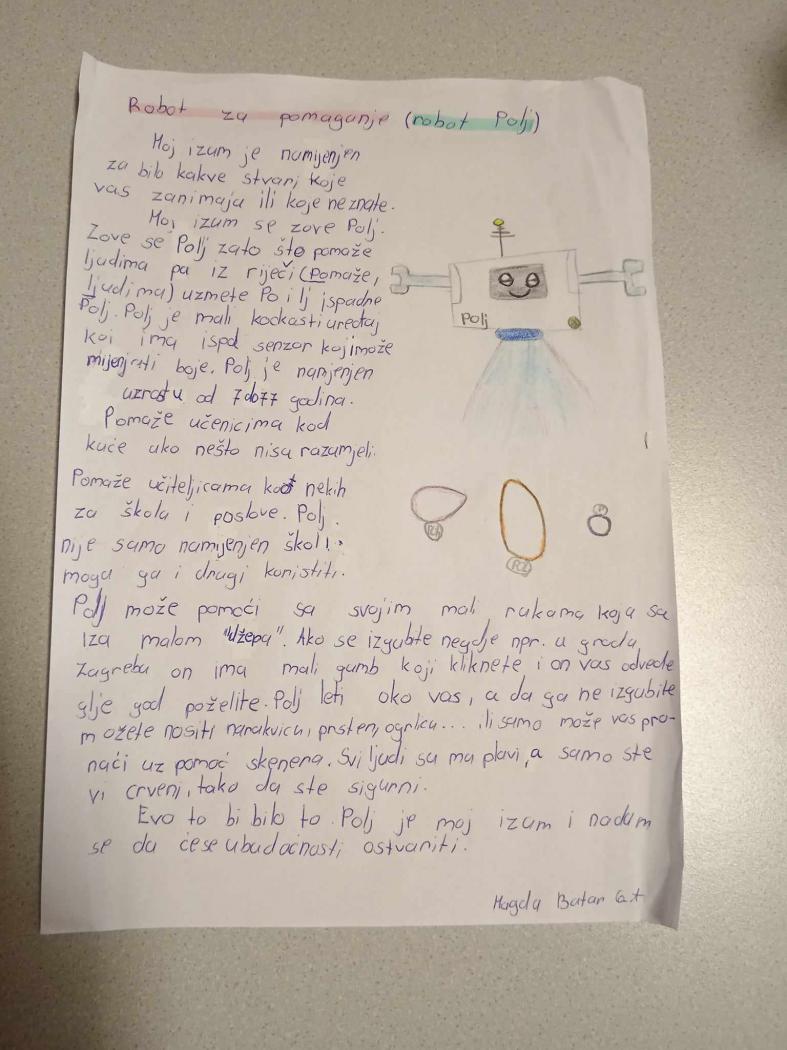 Robot za pomaganje (robot Polj)
Moj izum je namijenjen
za bilo kakve stvari koje
vas zanimaja ili koje neznate.
Moj izum se zove Polj.
Zove se Polj zato što pomaže
ljudima pa iz riječi (Pomaže,
ljudima) uzmete Po i lj ispadne
Polj. Polj je mali kockasti uređaj
koi ima ispd senzor koji može
mijenjati boje. Polj je namjenjen
uzrastu od 7 do 77 godina.
Pomaže učenicima kod
kuće ako nešto nisu razumjeli.
Pomaže učiteljicama kod nekih
za škola i poslove. Polj
nije samo namijenjen školi
moga ga i drugi koristiti.
Polj može pomoći sa svojim mali rukama koja sa
iza malom "džepa". Ako se izgubte negdje npr. u gradu
Zagrebu on ima mali gumb koji kliknete i on vas odvede
gdje god poželite. Polj leti oko vas, a da ga ne izgubite
možete nositi narukvicu, prsten, ogrlicu... ili samo može vas pro-
naći uz pomoć skenera. Svi ljudi su mu plavi, a samo ste
vi crveni, tako da ste sigurni.
Evo to bi bilo to. Polj je moj izum i nadam
se da će se u budućnosti ostvariti.
Magda Batar 6.t
Polj